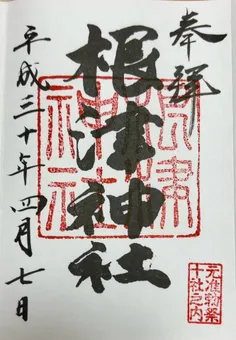 奉拝
根津神社
平成三十年四月七日
根津神社
元准勅祭
十社之内